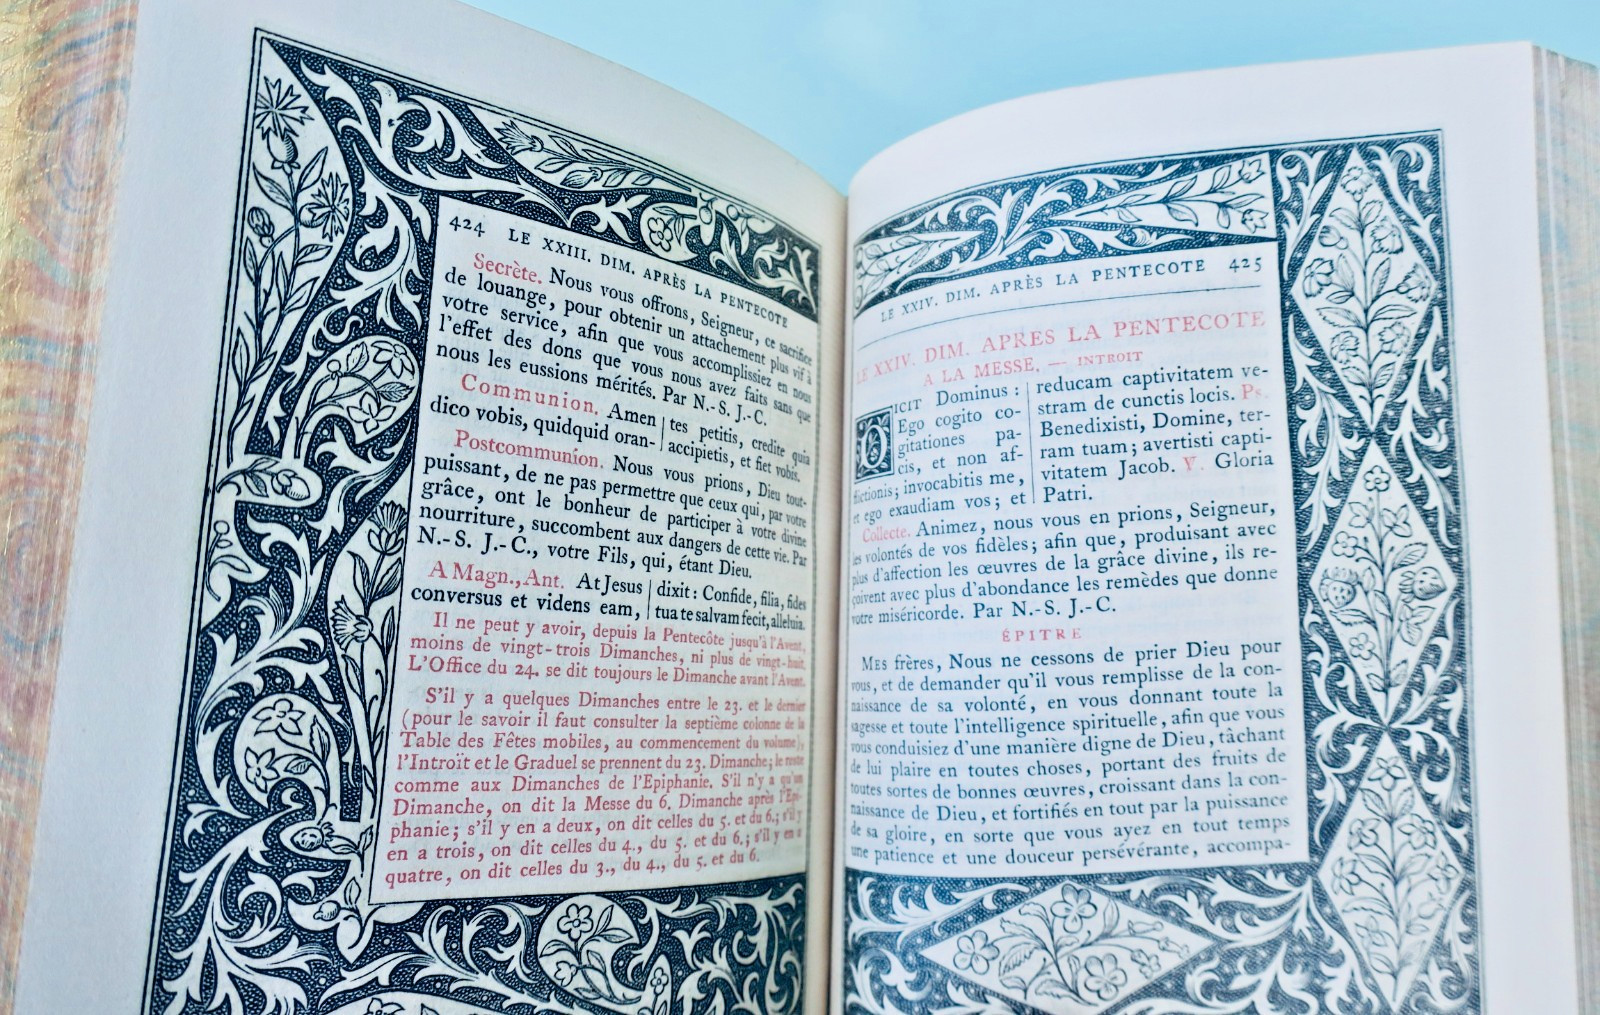 424 LE XXIII. DIM. APRÈS LA PENTECOTE
Secrète. Nous vous offrons, Seigneur, ce sacrifice
de louange, pour obtenir un attachement plus vif à
votre service, afin que vous accomplissiez en nous
l'effet des dons que vous nous avez faits sans que
nous les eussions mérités. Par N.-S. J.-C.
Communion. Amen
dico vobis, quidquid oran-
tes petitis, credite quia
accipietis, et fiet vobis.
Postcommunion. Nous vous prions, Dieu tout-
puissant, de ne pas permettre que ceux qui, par votre
grâce, ont le bonheur de participer à votre divine
nourriture, succombent aux dangers de cette vie. Par
N.-S. J.-C., votre Fils, qui, étant Dieu.
A Magn., Ant. At Jesus
conversus et videns eam,
dixit: Confide, filia, fides
tua te salvam fecit, alleluia.
Il ne peut y avoir, depuis la Pentecôte jusqu'à l'Avent,
moins de vingt-trois Dimanches, ni plus de vingt-huit.
L'Office du 24. se dit toujours le Dimanche avant l'Avent.
S'il y a quelques Dimanches entre le 23. et le dernier
(pour le savoir il faut consulter la septième colonne de la
Table des Fêtes mobiles, au commencement du volume),
l'Introït et le Graduel se prennent du 23. Dimanche; le reste
comme aux Dimanches de l'Epiphanie. S'il n'y a qu'un
Dimanche, on dit la Messe du 6. Dimanche après l'Epi-
phanie; s'il y en a deux, on dit celles du 5. et du 6.; s'il y
en a trois, on dit celles du 4., du 5. et du 6.; s'il y en a
quatre, on dit celles du 3., du 4., du 5. et du 6.
LE XXIV. DIM. APRÈS LA PENTECOTE 425
LE XXIV. DIM. APRES LA PENTECOTE
A LA MESSE. — INTROIT
DICIT Dominus :
Ego cogito co-
gitationes pa-
cis, et non af-
flictionis; invocabitis me,
et ego exaudiam vos; et
reducam captivitatem ve-
stram de cunctis locis. Ps.
Benedixisti, Domine, ter-
ram tuam; avertisti capti-
vitatem Jacob. ℣. Gloria
Patri.
Collecte. Animez, nous vous en prions, Seigneur,
les volontés de vos fidèles; afin que, produisant avec
plus d'affection les œuvres de la grâce divine, ils re-
çoivent avec plus d'abondance les remèdes que donne
votre miséricorde. Par N.-S. J.-C.
ÉPITRE
MES frères, Nous ne cessons de prier Dieu pour
vous, et de demander qu'il vous remplisse de la con-
naissance de sa volonté, en vous donnant toute la
sagesse et toute l'intelligence spirituelle, afin que vous
vous conduisiez d'une manière digne de Dieu, tâchant
de lui plaire en toutes choses, portant des fruits de
toutes sortes de bonnes œuvres, croissant dans la con-
naissance de Dieu, et fortifiés en tout par la puissance
de sa gloire, en sorte que vous ayez en tout temps
une patience et une douceur persévérante, accompa-